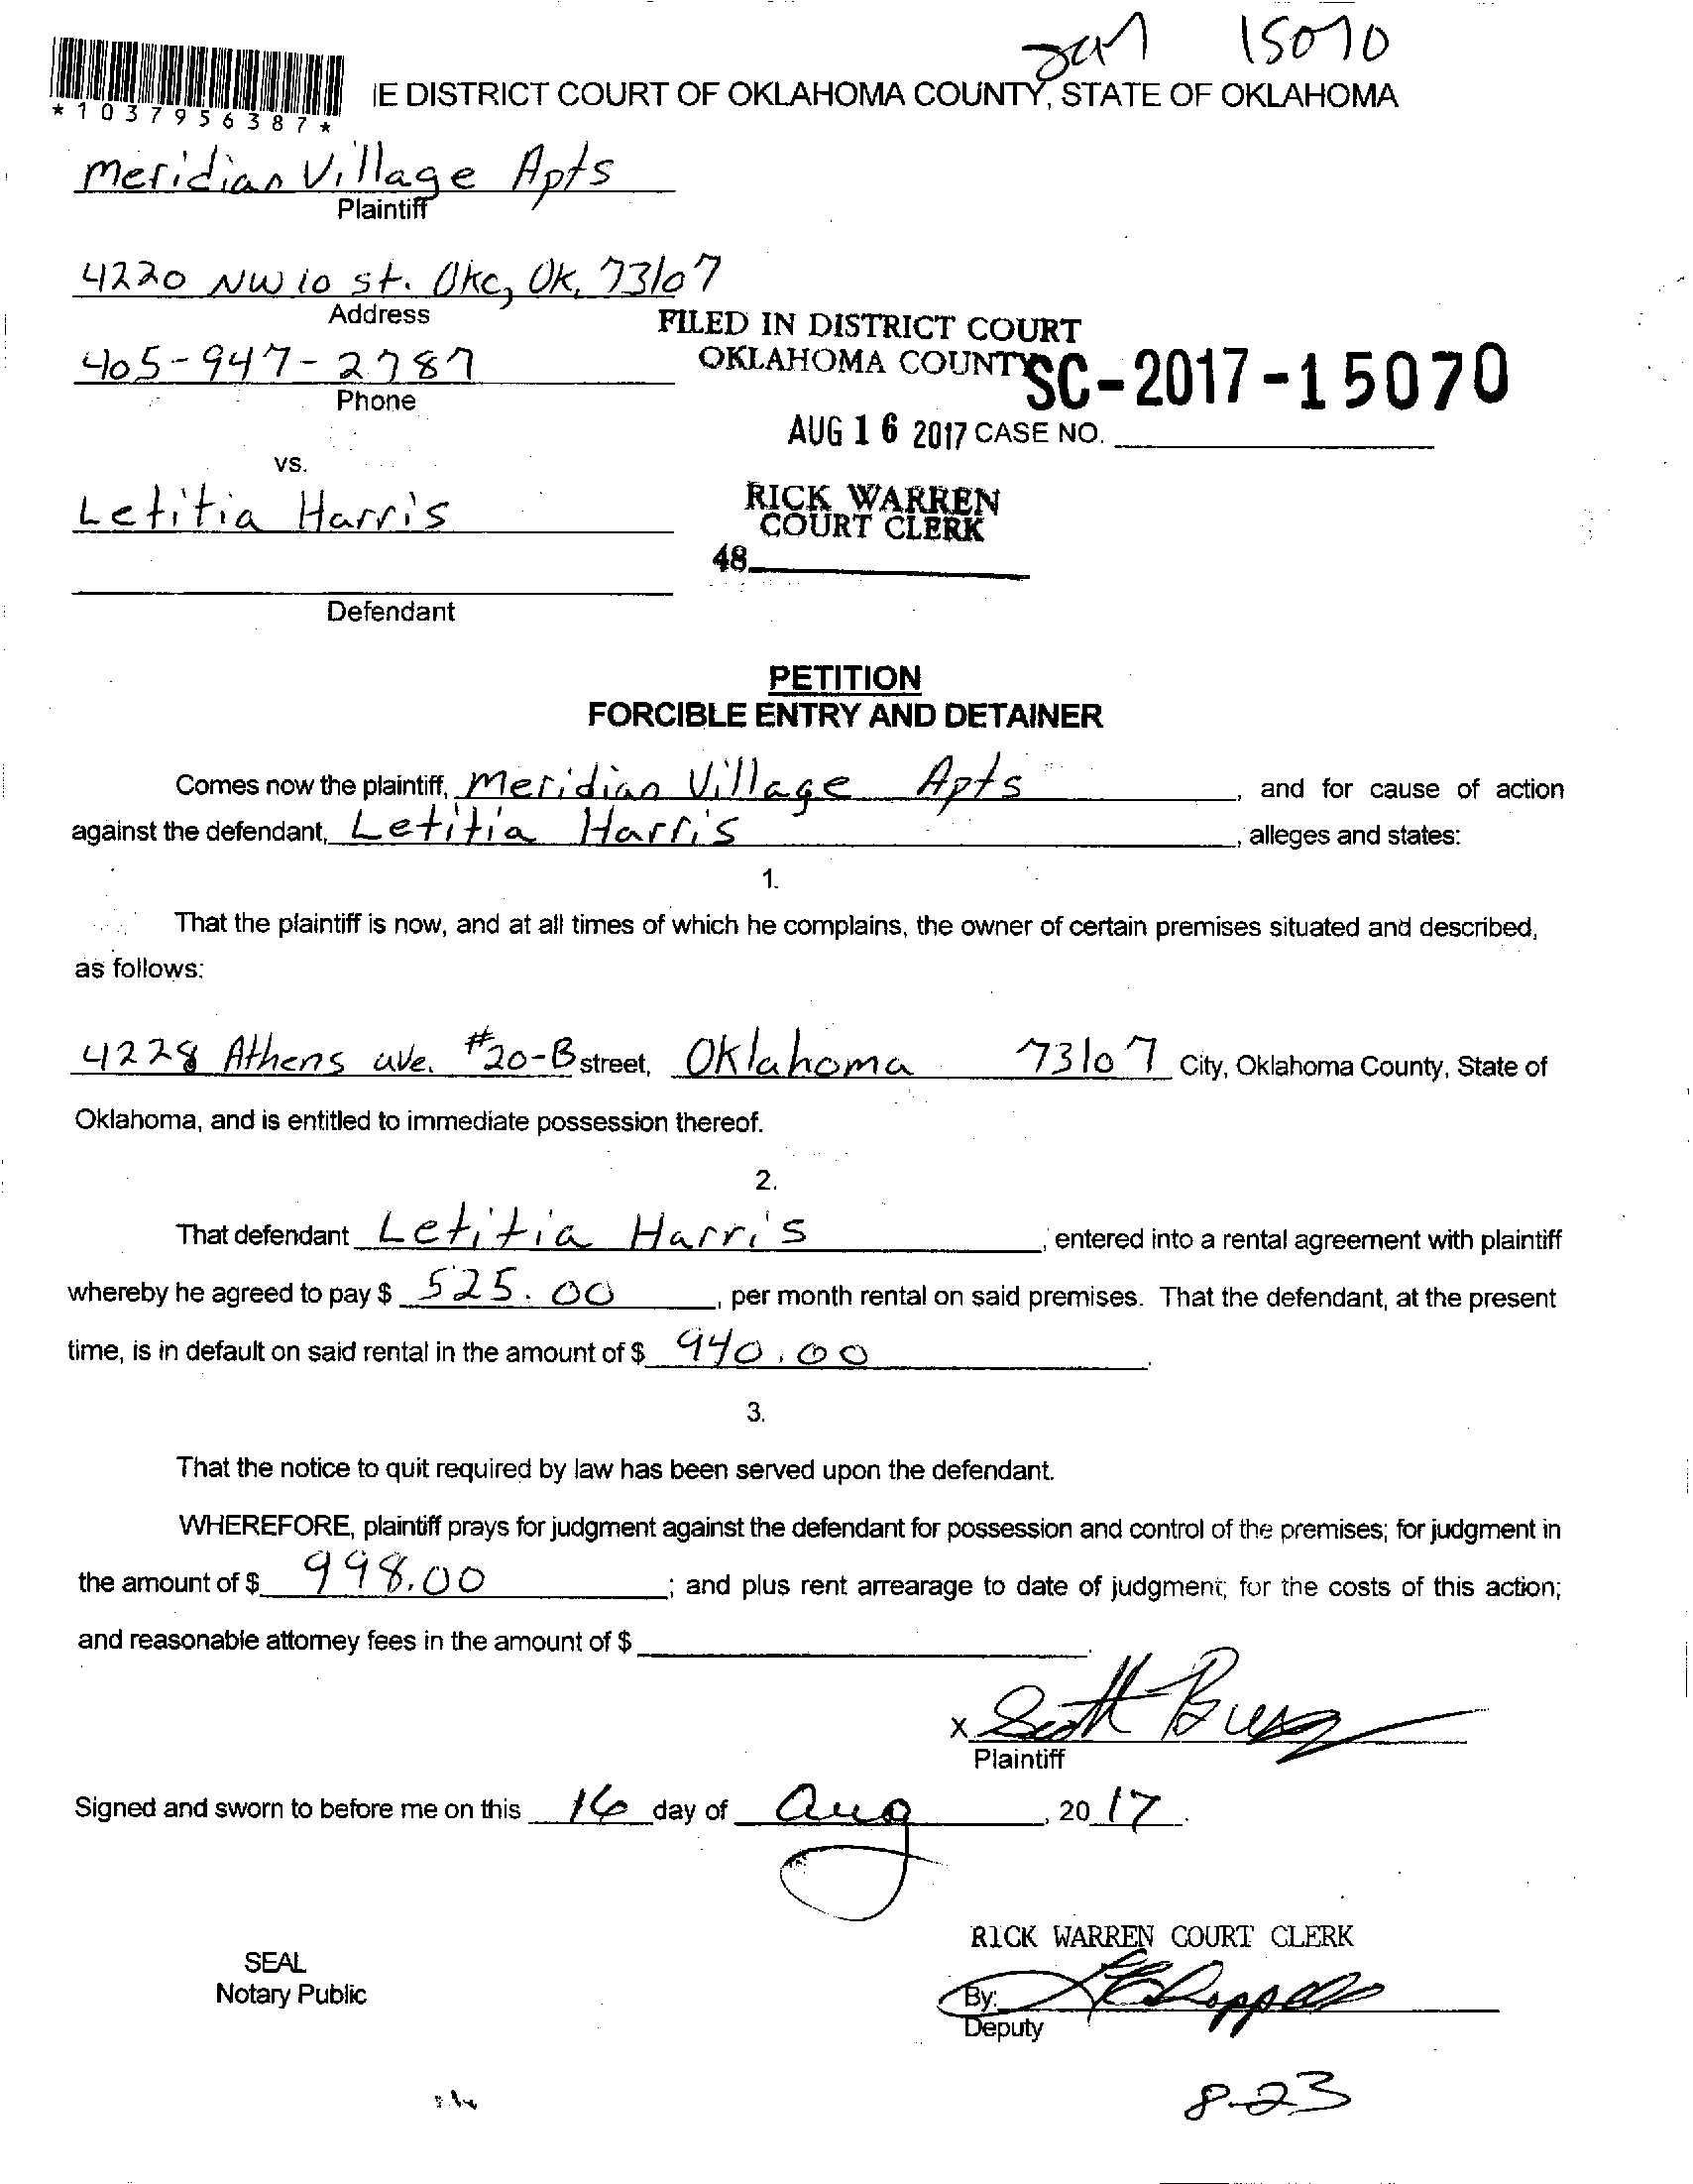 15070
*1037956387*
IE DISTRICT COURT OF OKLAHOMA COUNTY, STATE OF OKLAHOMA
Meridian Village Apts
Plaintiff
4220 NW 10 st. Okc, Ok, 73107
Address
FILED IN DISTRICT COURT
OKLAHOMA COUNTY
SC-2017-15070
405-947-2787
Phone
AUG 16 2017 CASE NO.
vs.
Letitia Harris
RICK WARREN
COURT CLERK
48
Defendant
PETITION
FORCIBLE ENTRY AND DETAINER
Comes now the plaintiff, Meridian Village Apts, and for cause of action
against the defendant, Letitia Harris, alleges and states:
1.
That the plaintiff is now, and at all times of which he complains, the owner of certain premises situated and described,
as follows:
4228 Athens ave. #20-B street, Oklahoma 73107 City, Oklahoma County, State of
Oklahoma, and is entitled to immediate possession thereof.
2.
That defendant Letitia Harris, entered into a rental agreement with plaintiff
whereby he agreed to pay $ 525.00, per month rental on said premises. That the defendant, at the present
time, is in default on said rental in the amount of $ 940.00.
3.
That the notice to quit required by law has been served upon the defendant.
WHEREFORE, plaintiff prays for judgment against the defendant for possession and control of the premises; for judgment in
the amount of $ 998.00; and plus rent arrearage to date of judgment; for the costs of this action;
and reasonable attorney fees in the amount of $.
x Scott
Plaintiff
Signed and sworn to before me on this 16 day of Aug, 20 17.
RICK WARREN COURT CLERK
SEAL
Notary Public
By:
Deputy
8-23